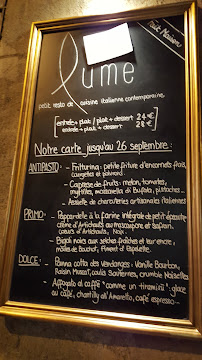 Fait Maison
Plume
petit resto de cuisine italienne contemporaine
entrée + plat / plat + dessert 24 €
entrée + plat + dessert 28 €
Notre carte jusqu'au 26 septembre :
ANTIPASTO : - Fritturina : petite friture d'encornets frais,
courgettes et poivrard
- Caprese de fruits : melon, tomates,
myrtilles, mozzarella di Bufala, pistaches
- Assiette de charcuteries artisanales italiennes
PRIMO : - Pappardelle à la farine intégrale de petit épeautre
crème d'Artichauts au mascarpone et Safran,
cœurs d'Artichauts, Noix.
- Bigoli noirs aux seiches fraîches et leur encre,
moules de Bouchot, Piment d'Espelette
DOLCE : - Panna cotta des Vendanges : Vanille Bourbon,
Raisin Muscat, coulis Sauternes, crumble Noisettes
- Affogato al caffè "comme un tiramisù" : glace
au café, chantilly all'Amaretto, café espresso